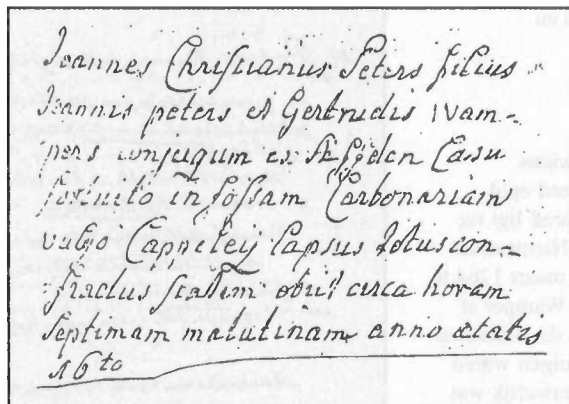 Joannes Christianus Peters filius
Joannis peters et Gertrudis Wam=
pers conjugum ex Casu
fortuito in fossam Carbonariam
vulgo Lapsus totus con=
fractus statim obiit circa horam
septimam matutinam anno ætatis
16to